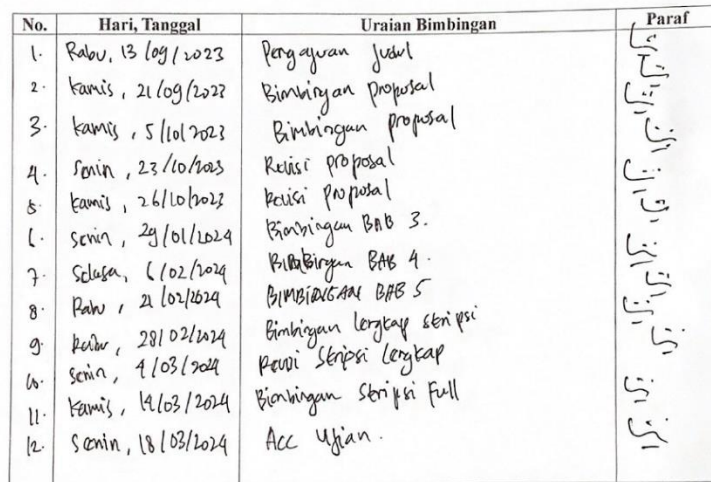 No. Hari, Tanggal Uraian Bimbingan Paraf
1. Rabu, 13/09/2023 Pengajuan Judul
2. Kamis, 21/09/2023 Bimbingan proposal
3. Kamis, 5/10/2023 Bimbingan proposal
4. Senin, 23/10/2023 Revisi proposal
5. Kamis, 26/10/2023 Revisi proposal
6. Senin, 29/01/2024 Bimbingan BAB 3.
7. Selasa, 6/02/2024 Bimbingan BAB 4.
8. Rabu, 21/02/2024 BIMBINGAN BAB 5
9. Rabu, 28/02/2024 Bimbingan lengkap skripsi
10. Senin, 4/03/2024 Revisi Skripsi Lengkap
11. Kamis, 14/03/2024 Bimbingan Skripsi Full
12. Senin, 18/03/2024 Acc Ujian.